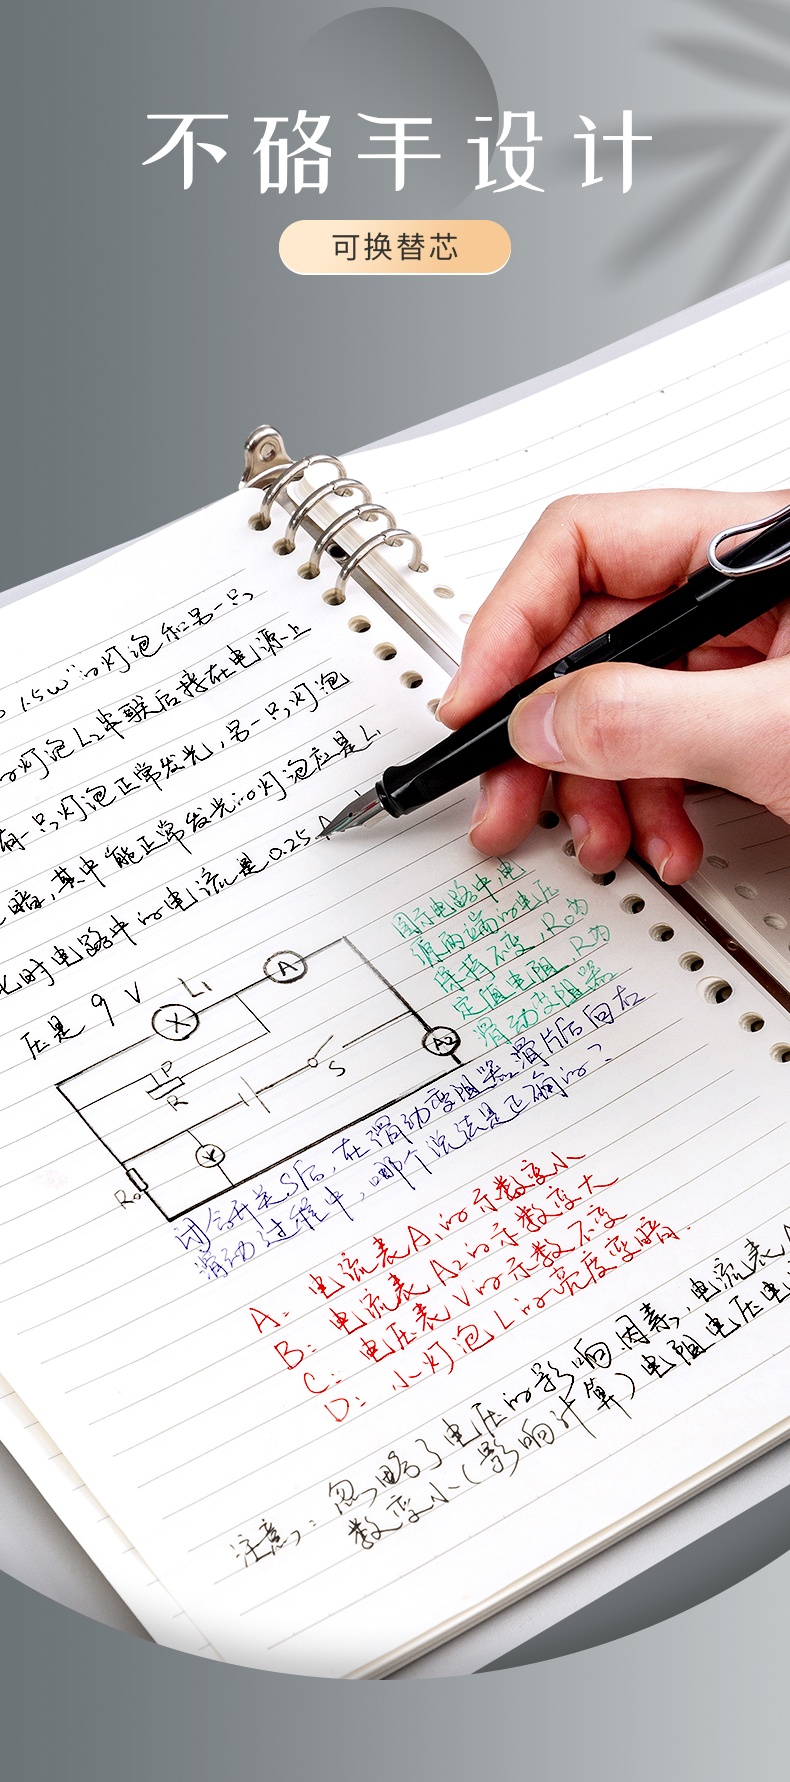 不硌手设计
可换替芯
1.5W"的灯泡和另一只
灯泡L2串联后接在电源上
有一只灯泡正常发光,另一只灯泡
暗,其中能正常发光的灯泡应是L1
此时电路中的电流是0.25A
压是 9 V
L1
A
X
P
R
S
A2
V
R0
图示电路中,电
源两端的电压
保持不变,R0为
定值电阻,R为
滑动变阻器
闭合开关S后,在滑动变阻器滑片P向右
滑动过程中,哪个说法是正确的?
A:电流表A1的示数变小
B:电流表A2的示数变大
C:电压表V的示数不变
D:小灯泡L的亮度变暗.
注意:忽略了电压的影响因素,电流表A
数变小(影响计算)电阻电压电